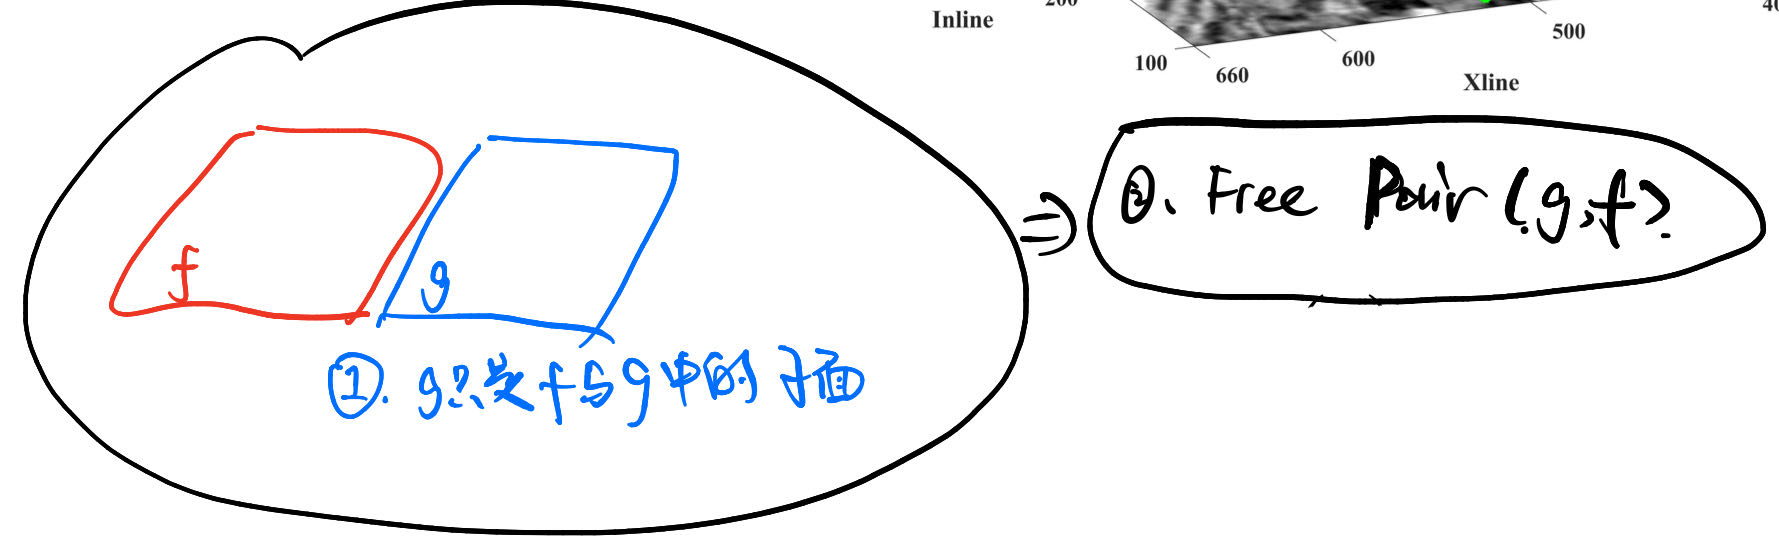 Inline
200
100
660
600
500
40
Xline
f
g
①. g只是f与g中的子面
⇒
②. Free Pair (g,f).